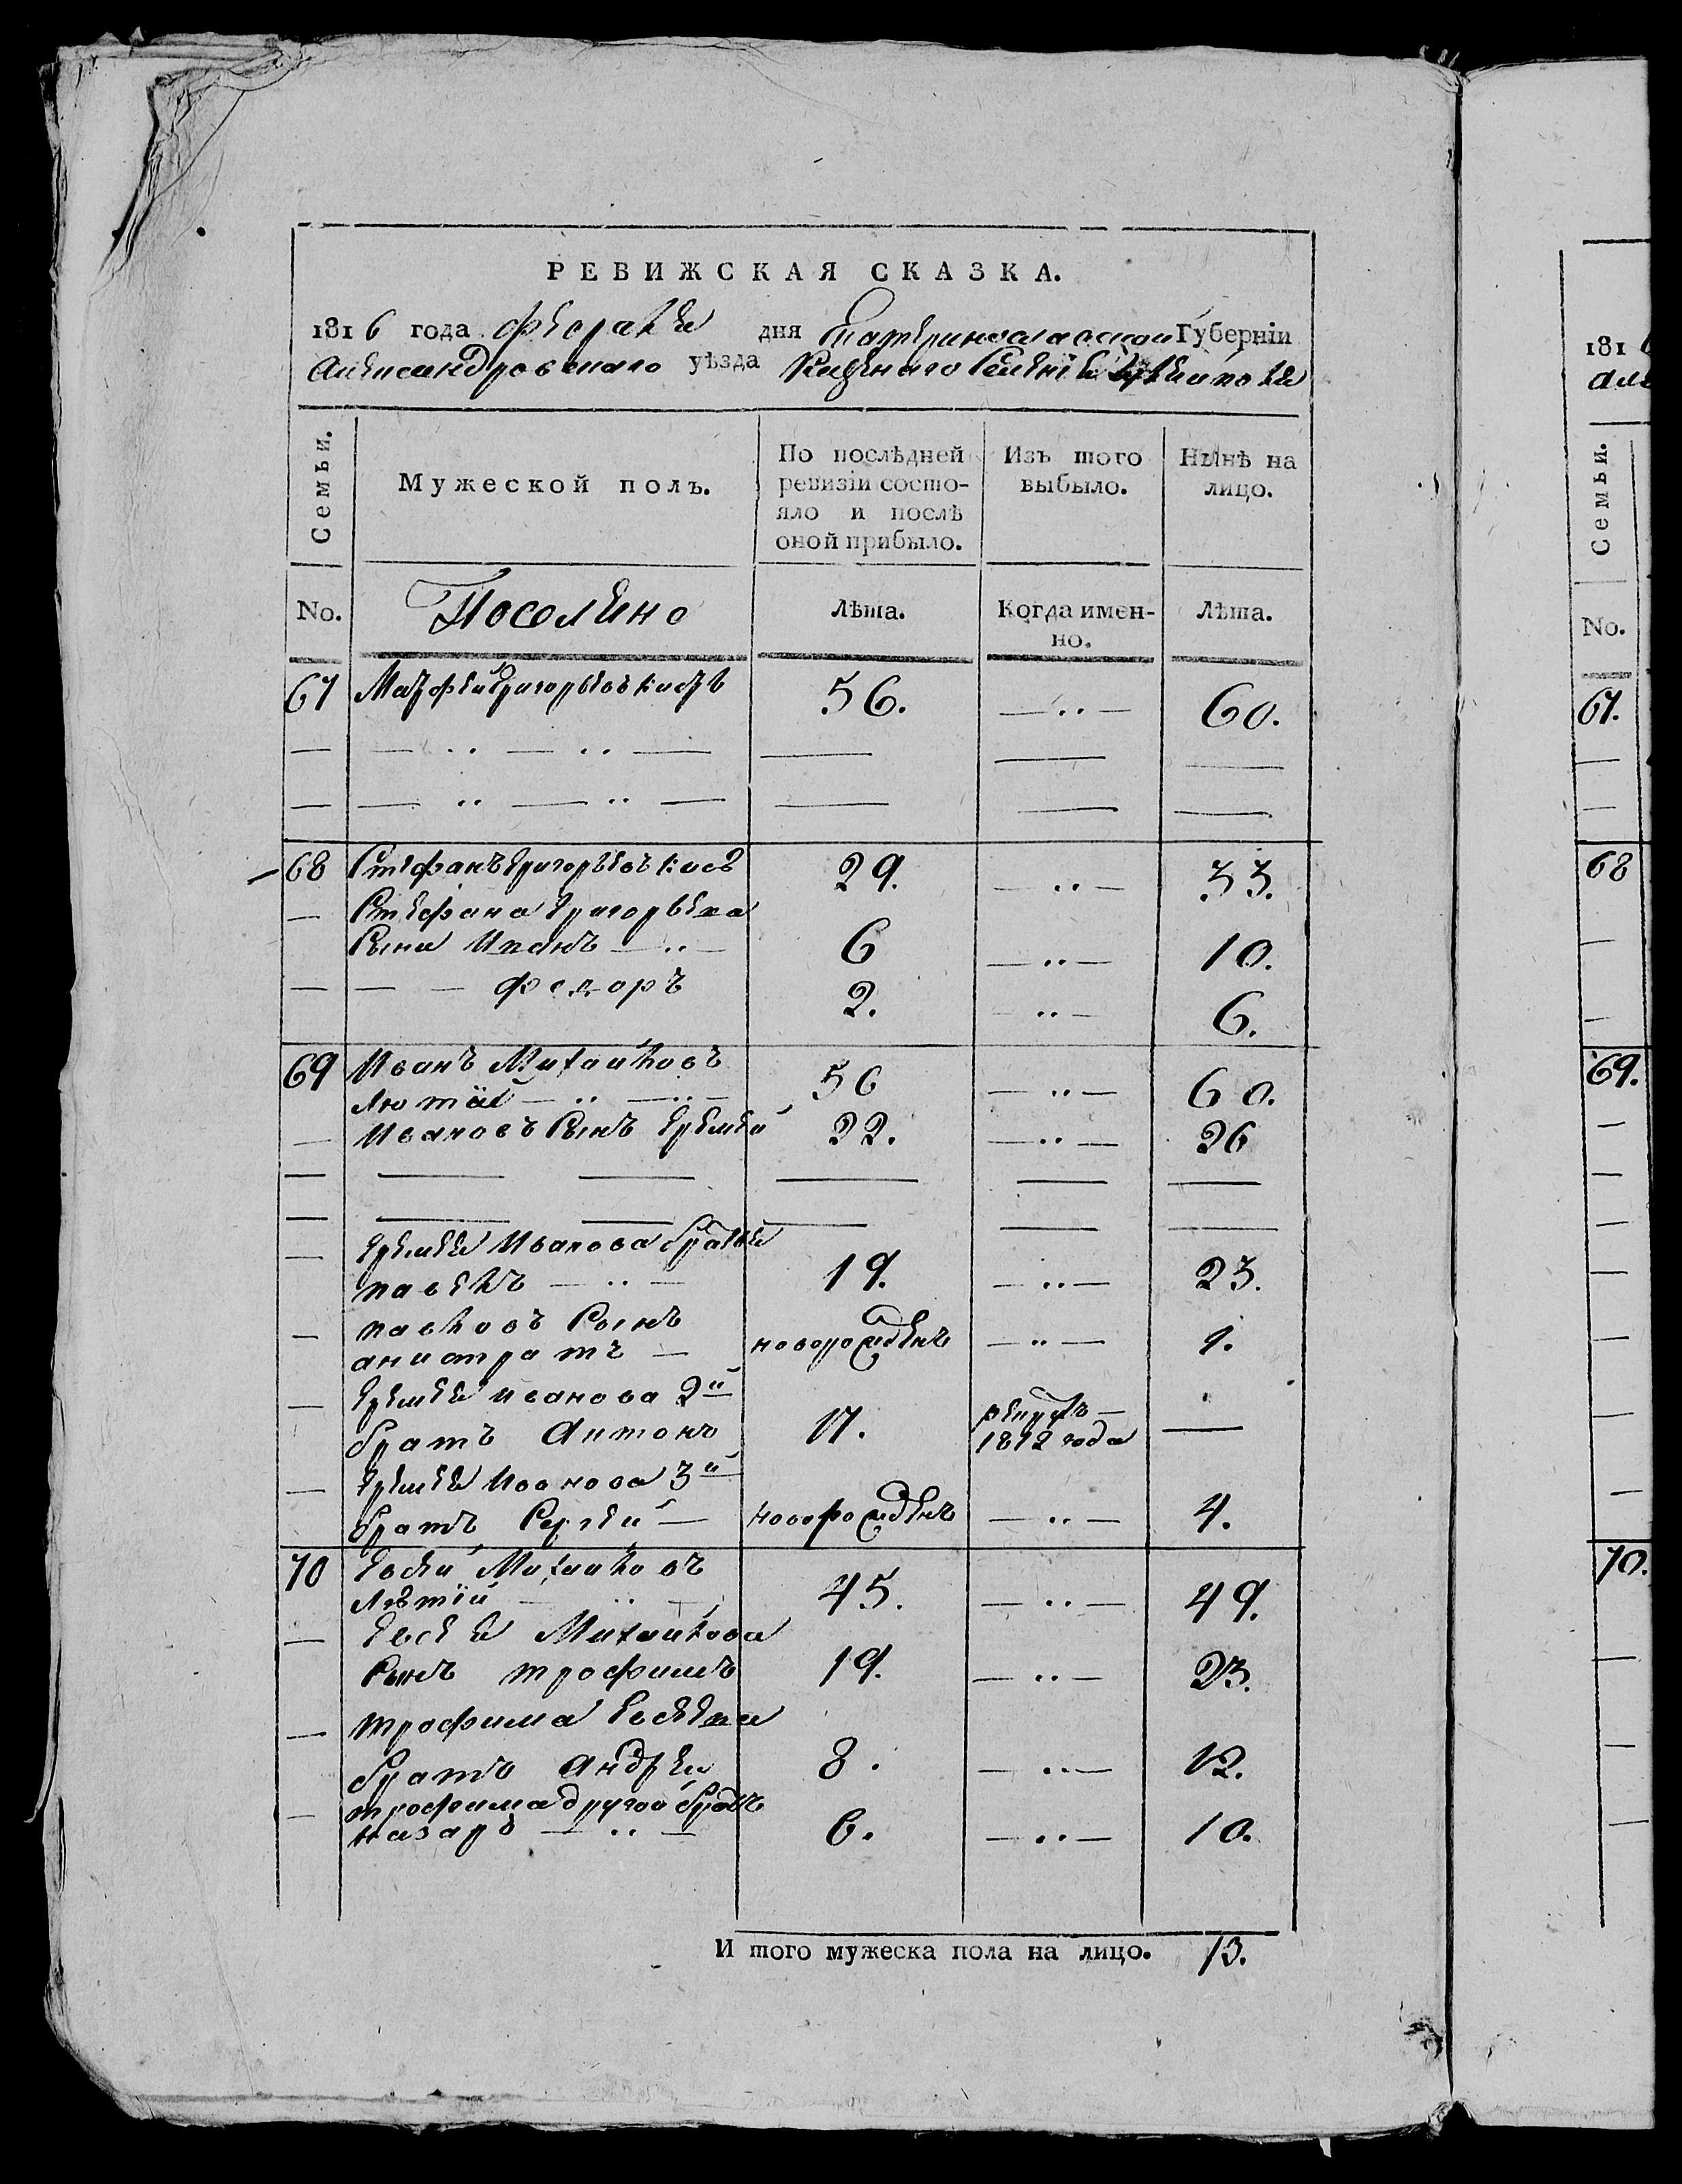 РЕВИЖСКАЯ СКАЗКА.
1816 года февраля дня Екатеринославской Губерніи
Александровскаго уѣзда Казенаго Селенія
Семьи.
Мужеской полъ.
По послѣдней ревизіи состояло и послѣ оной прибыло.
Изъ того выбыло.
Нынѣ на лицо.
No.
Поселяно
Лѣта.
Когда именно.
Лѣта.
67 Матфей Григорьевъ 56. —..— 60.
— — .. — .. — — — —
— — .. — .. — — — —
68 Стефанъ Григорьевъ 29. —..— 33.
— Стефана Григорьева
Сыны Иванъ —..— 6 —..— 10.
— — — федоръ 2. —..— 6.
69 Иванъ Михайловъ
Лютій — .. — .. — 56 —..— 60.
— Ивановъ Сынъ Еремей 22. —..— 26
— — — — — —
— — — — — —
— Еремея Иванова братья
павелъ — .. — 19. —..— 23.
— павловъ Сынъ
анистратъ — новорожденъ —..— 1.
— Еремея иванова 2й
братъ Антонъ 17. рекрутъ — 1812 года —
— Еремея Иванова 3й
братъ Сергей — новорожденъ —..— 4.
70 Евсей Михайловъ
Лютій — .. — 45. —..— 49.
— Евсея Михайлова
Сынъ трофимъ 19. —..— 23.
— трофима Евсеева
братъ андрей 8. —..— 12.
— трофима другой братъ
назаръ — .. — 6. —..— 10.
И того мужеска пола на лицо. 13.
181
Семьи.
No.
67.
68
69.
70.